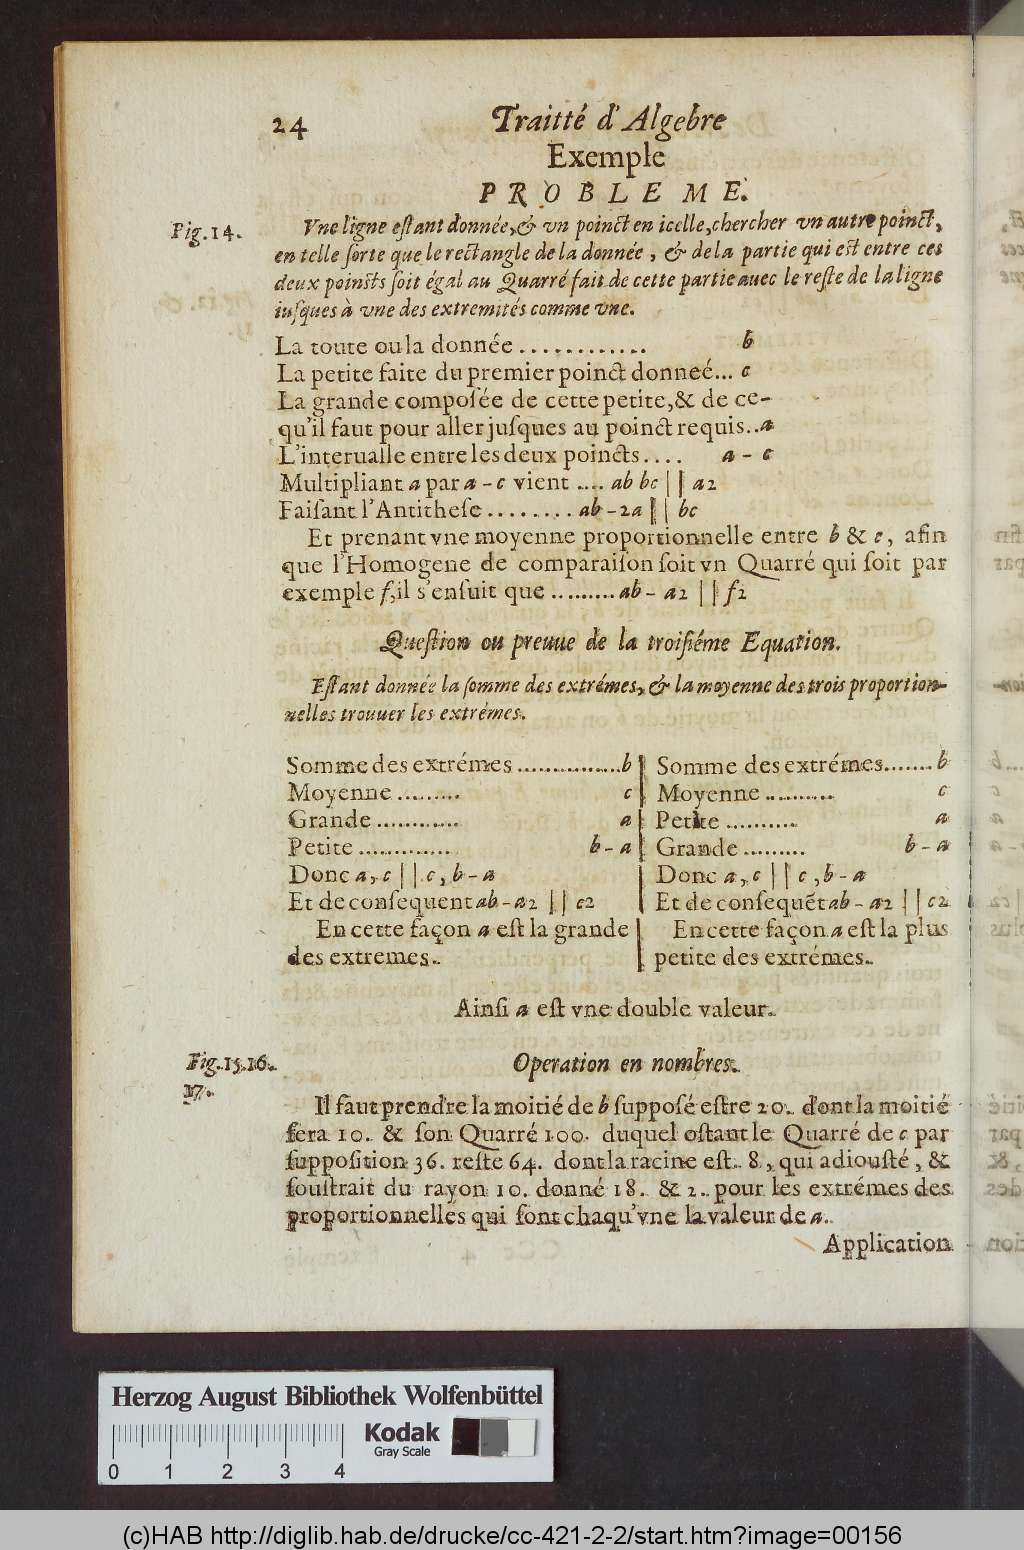 24 Traitté d'Algebre
Exemple
PROBLEME.
Fig. 14. Vne ligne eſtant donnée, & vn poinct en icelle, chercher vn autre poinct,
en telle ſorte que le rectangle de la donnée, & de la partie qui est entre ces
deux poincts ſoit égal au Quarré fait de cette partie auec le reſte de la ligne
iuſques à vne des extremités comme vne.
La toute ou la donnée ............ b
La petite faite du premier poinct donneé... c
La grande compoſée de cette petite, & de ce-
qu'il faut pour aller juſques au poinct requis.. a
L'interualle entre les deux poincts.... a - c
Multipliant a par a - c vient .... ab bc || a2
Faiſant l'Antitheſe ......... ab - 2a || bc
Et prenant vne moyenne proportionnelle entre b & c, afin
que l'Homogene de comparaiſon ſoit vn Quarré qui ſoit par
exemple f, il s'enſuit que ......... ab - a2 || f2
Queſtion ou preuue de la troiſiéme Equation.
Eſtant donnée la ſomme des extrémes, & la moyenne des trois proportion-
nelles trouuer les extrémes.
Somme des extrémes ................ b
Moyenne ......... c
Grande ............ a
Petite .............. b - a
Donc a, c || c, b - a
Et de conſequent ab - a2 || c2
En cette façon a eſt la grande
des extremes.
Somme des extrémes....... b
Moyenne ........... c
Petite ........... a
Grande ......... b - a
Donc a, c || c, b - a
Et de conſequẽt ab - a2 || c2
En cette façon a eſt la plus
petite des extrémes.
Ainſi a eſt vne double valeur.
Fig. 15. 16. Operation en nombres.
17.
Il faut prendre la moitié de b ſuppoſé eſtre 20. dont la moitié
ſera 10. & ſon Quarré 100. duquel oſtant le Quarré de c par
ſuppoſition 36. reſte 64. dont la racine eſt. 8, qui adiouſté, &
ſouſtrait du rayon 10. donné 18. & 2. pour les extrémes des
proportionnelles qui ſont chaqu'vne la valeur de a.
Application
Herzog August Bibliothek Wolfenbüttel
Kodak
Gray Scale
0 1 2 3 4
(c)HAB http://diglib.hab.de/drucke/cc-421-2-2/start.htm?image=00156